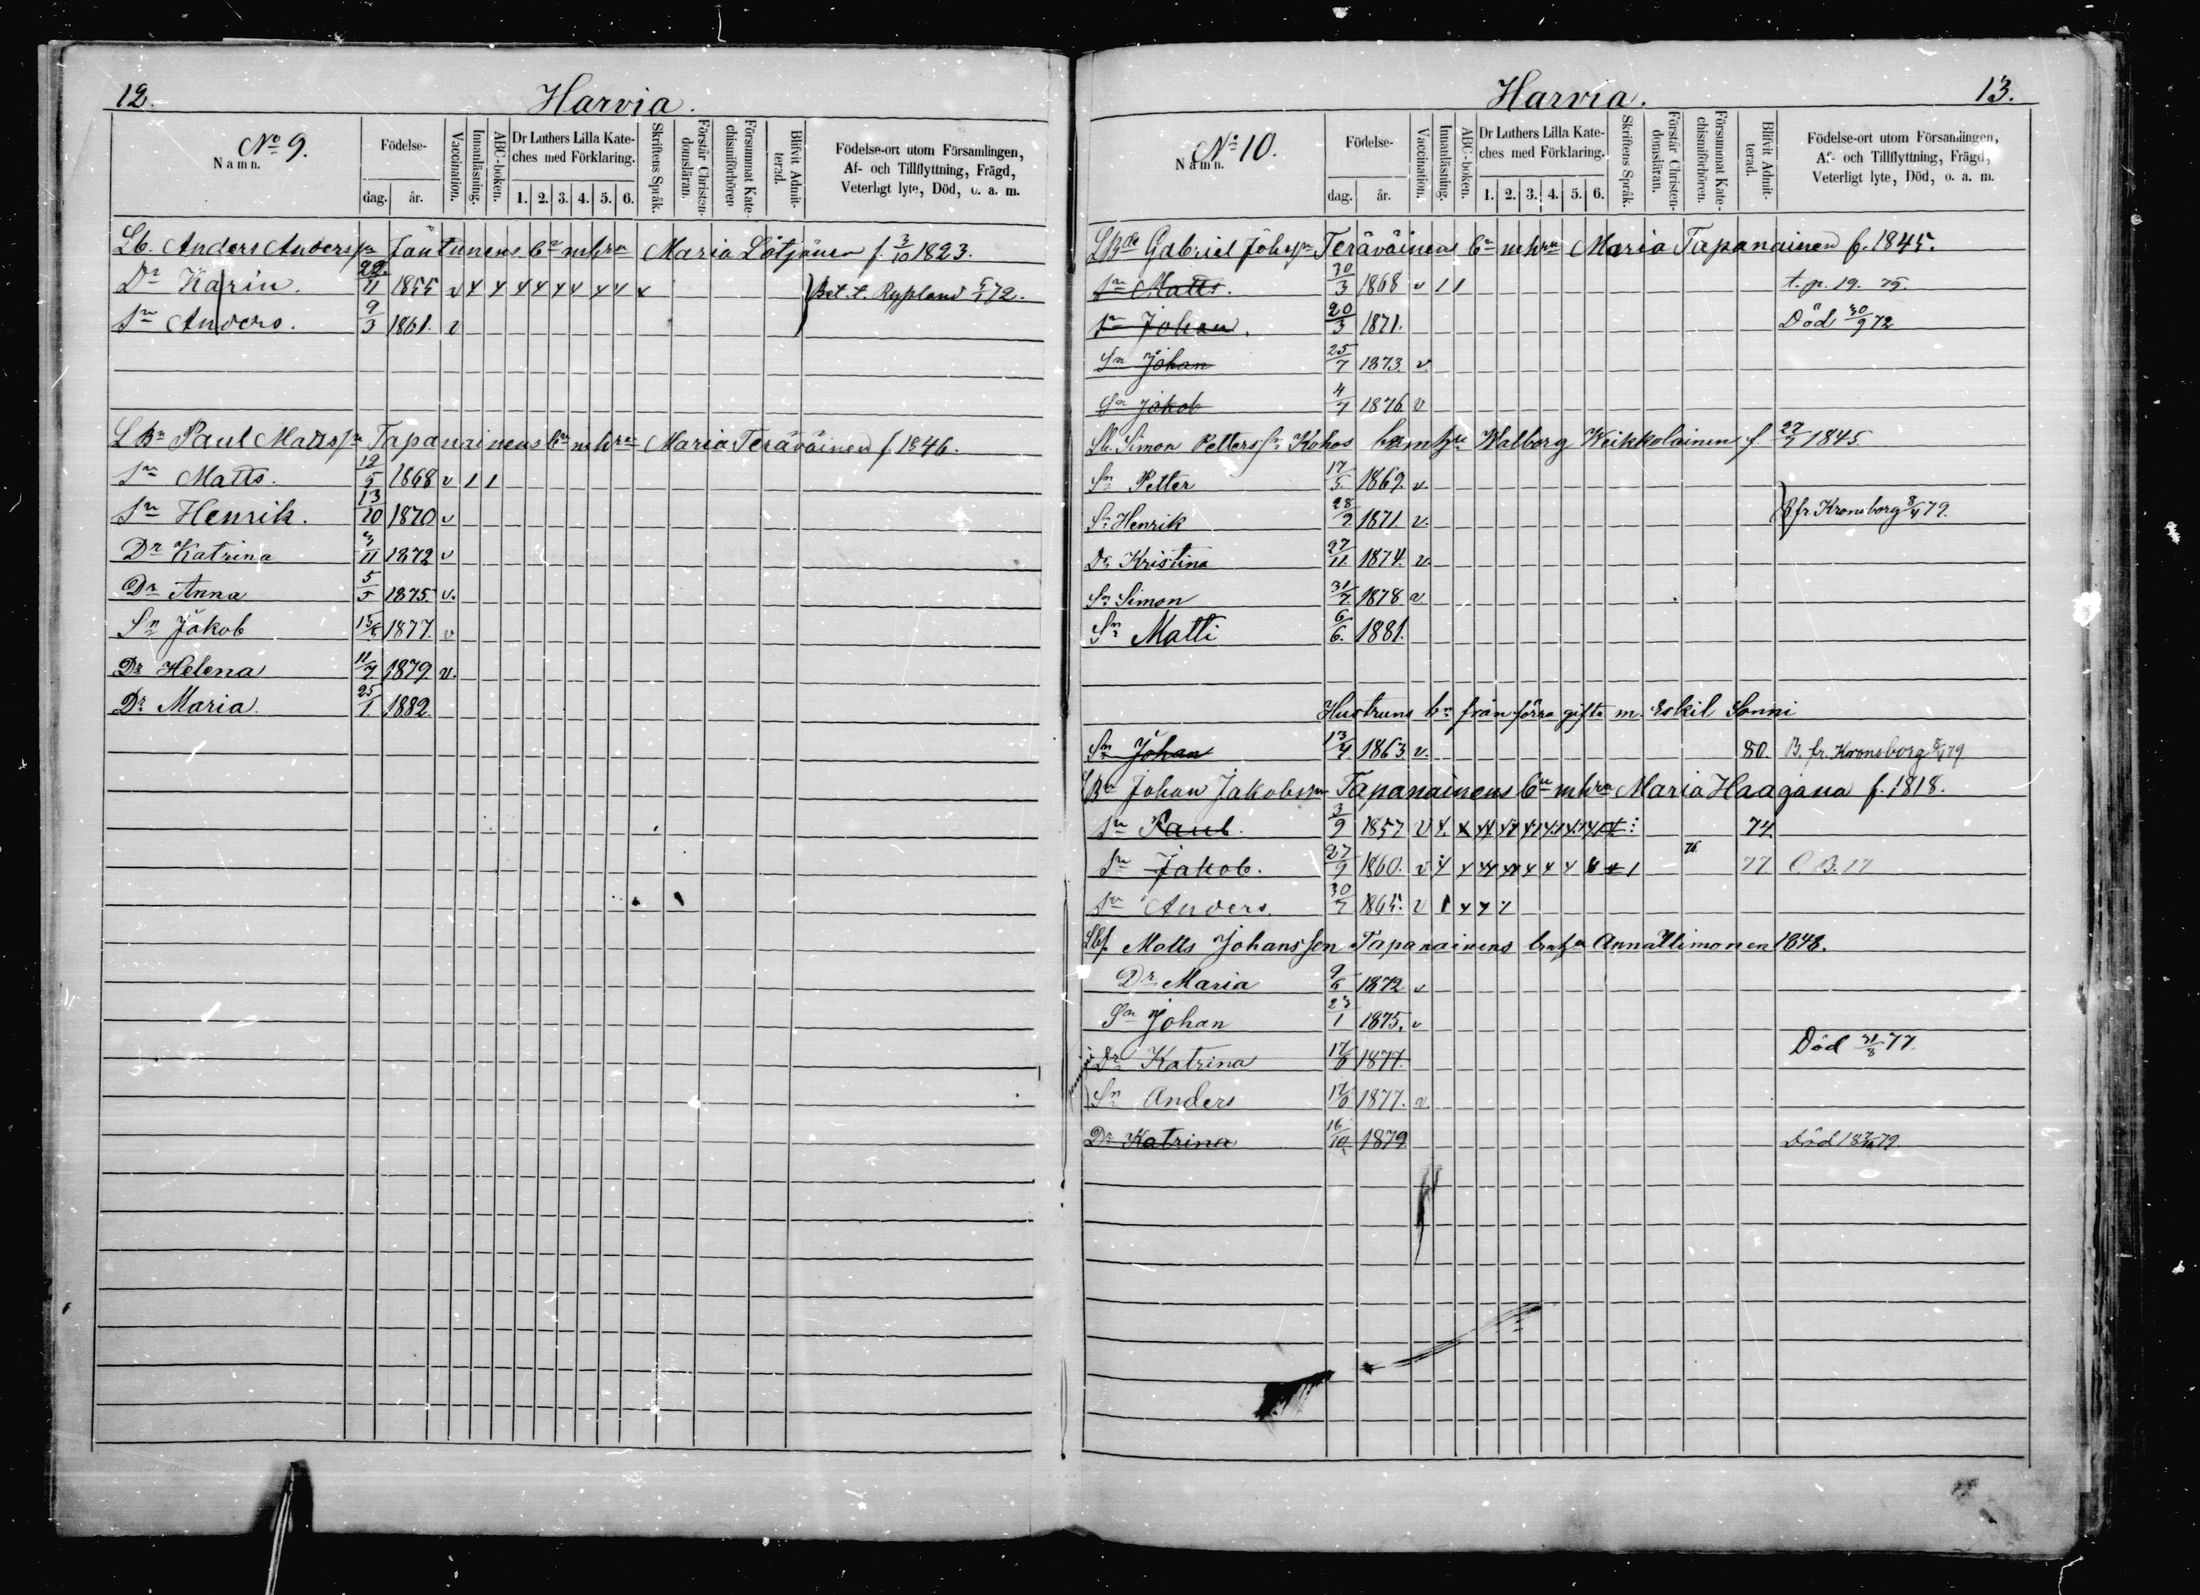 12.
Harvia.
No 9.
Namn.
Födelse-
dag.
år.
Vaccination.
Innanläsning.
ABC-boken.
Dr Luthers Lilla Kate-
ches med Förklaring.
1. 2. 3. 4. 5. 6.
Skriftens Språk.
Förstår Christen-
domsläran.
Försummat Kate-
chismiförhören
Blifvit Admit-
terad.
Födelse-ort utom Församlingen,
Af- och Tillflyttning, Frägd,
Veterligt lyte, Död, o. a. m.
Lb. Anders Anderssn Jäntunens bn mhru Maria Lötjönen f. 3/10 1823.
Dr Karin. 22/11 1855 v x x x x x x x x x Bet. t. Rypland 5/1 72.
Sn Anders. 9/3 1861. v
LBn Paul Mattssn Tapanainens bn mhru Maria Teräväinen f. 1846.
Sn Matts. 12/5 1868 v 1 1
Sn Henrik. 13/10 1870 v
Dr Katrina 3/11 1872 v
Dr Anna 5/5 1875. v.
Sn Jakob 1877. v
Dr Helena 11/7 1879 v.
Dr Maria. 25/1. 1882.
Harvia.
13.
No 10.
Namn.
Födelse-
dag.
år.
Vaccination.
Innanläsning.
ABC-boken.
Dr Luthers Lilla Kate-
ches med Förklaring.
1. 2. 3. 4. 5. 6.
Skriftens Språk.
Förstår Christen-
domsläran.
Försummat Kate-
chismiförhören.
Blifvit Admit-
terad.
Födelse-ort utom Församlingen,
Af- och Tillflyttning, Frägd,
Veterligt lyte, Död, o. a. m.
Gabriel Johssn Teräväinens bn mhru Maria Tapanainen f. 1845.
Sn Matts. 30/3 1868 v 1 1 t. p. 19. 75.
Sn Johan. 20/3 1871. Död 30/9 72
Sn Johan 25/7 1873. v.
Sn Jakob 4/7 1876 v
Simon Petterssn Kohos bn m hu Walborg Keikkolainen f 27/7 1845.
Sn Petter 17/5. 1869. v.
Sn Henrik 28/9 1871. v. B fr Kronoborg 8/4 79.
Dr Kristina 27/11. 1874. v.
Sn Simon 31/7. 1878 v.
Sn Matti 6/6. 1881.
Hustruns bn från förra gifte m. Eskil Sonni
Sn Johan 13/4. 1863 v. 80. B. fr. Kronoborg 8/4 79
Johan Jakobssn Tapanainens bn mhru Maria Haagana f. 1818.
Sn Paul. 3/9 1857 v 74.
Sn Jakob. 27/9 1860. v 76 77
Sn Anders. 30/7 1865. v
Matts Johansson Tapanainens Anna Timonen 1848.
Dr Maria 9/6 1872 v
Sn Johan 23/1 1875. v
Dr Katrina 1877. Död 31/8 77.
Sn Anders 1877. v
Dr Katrina 16/10 1879 Död